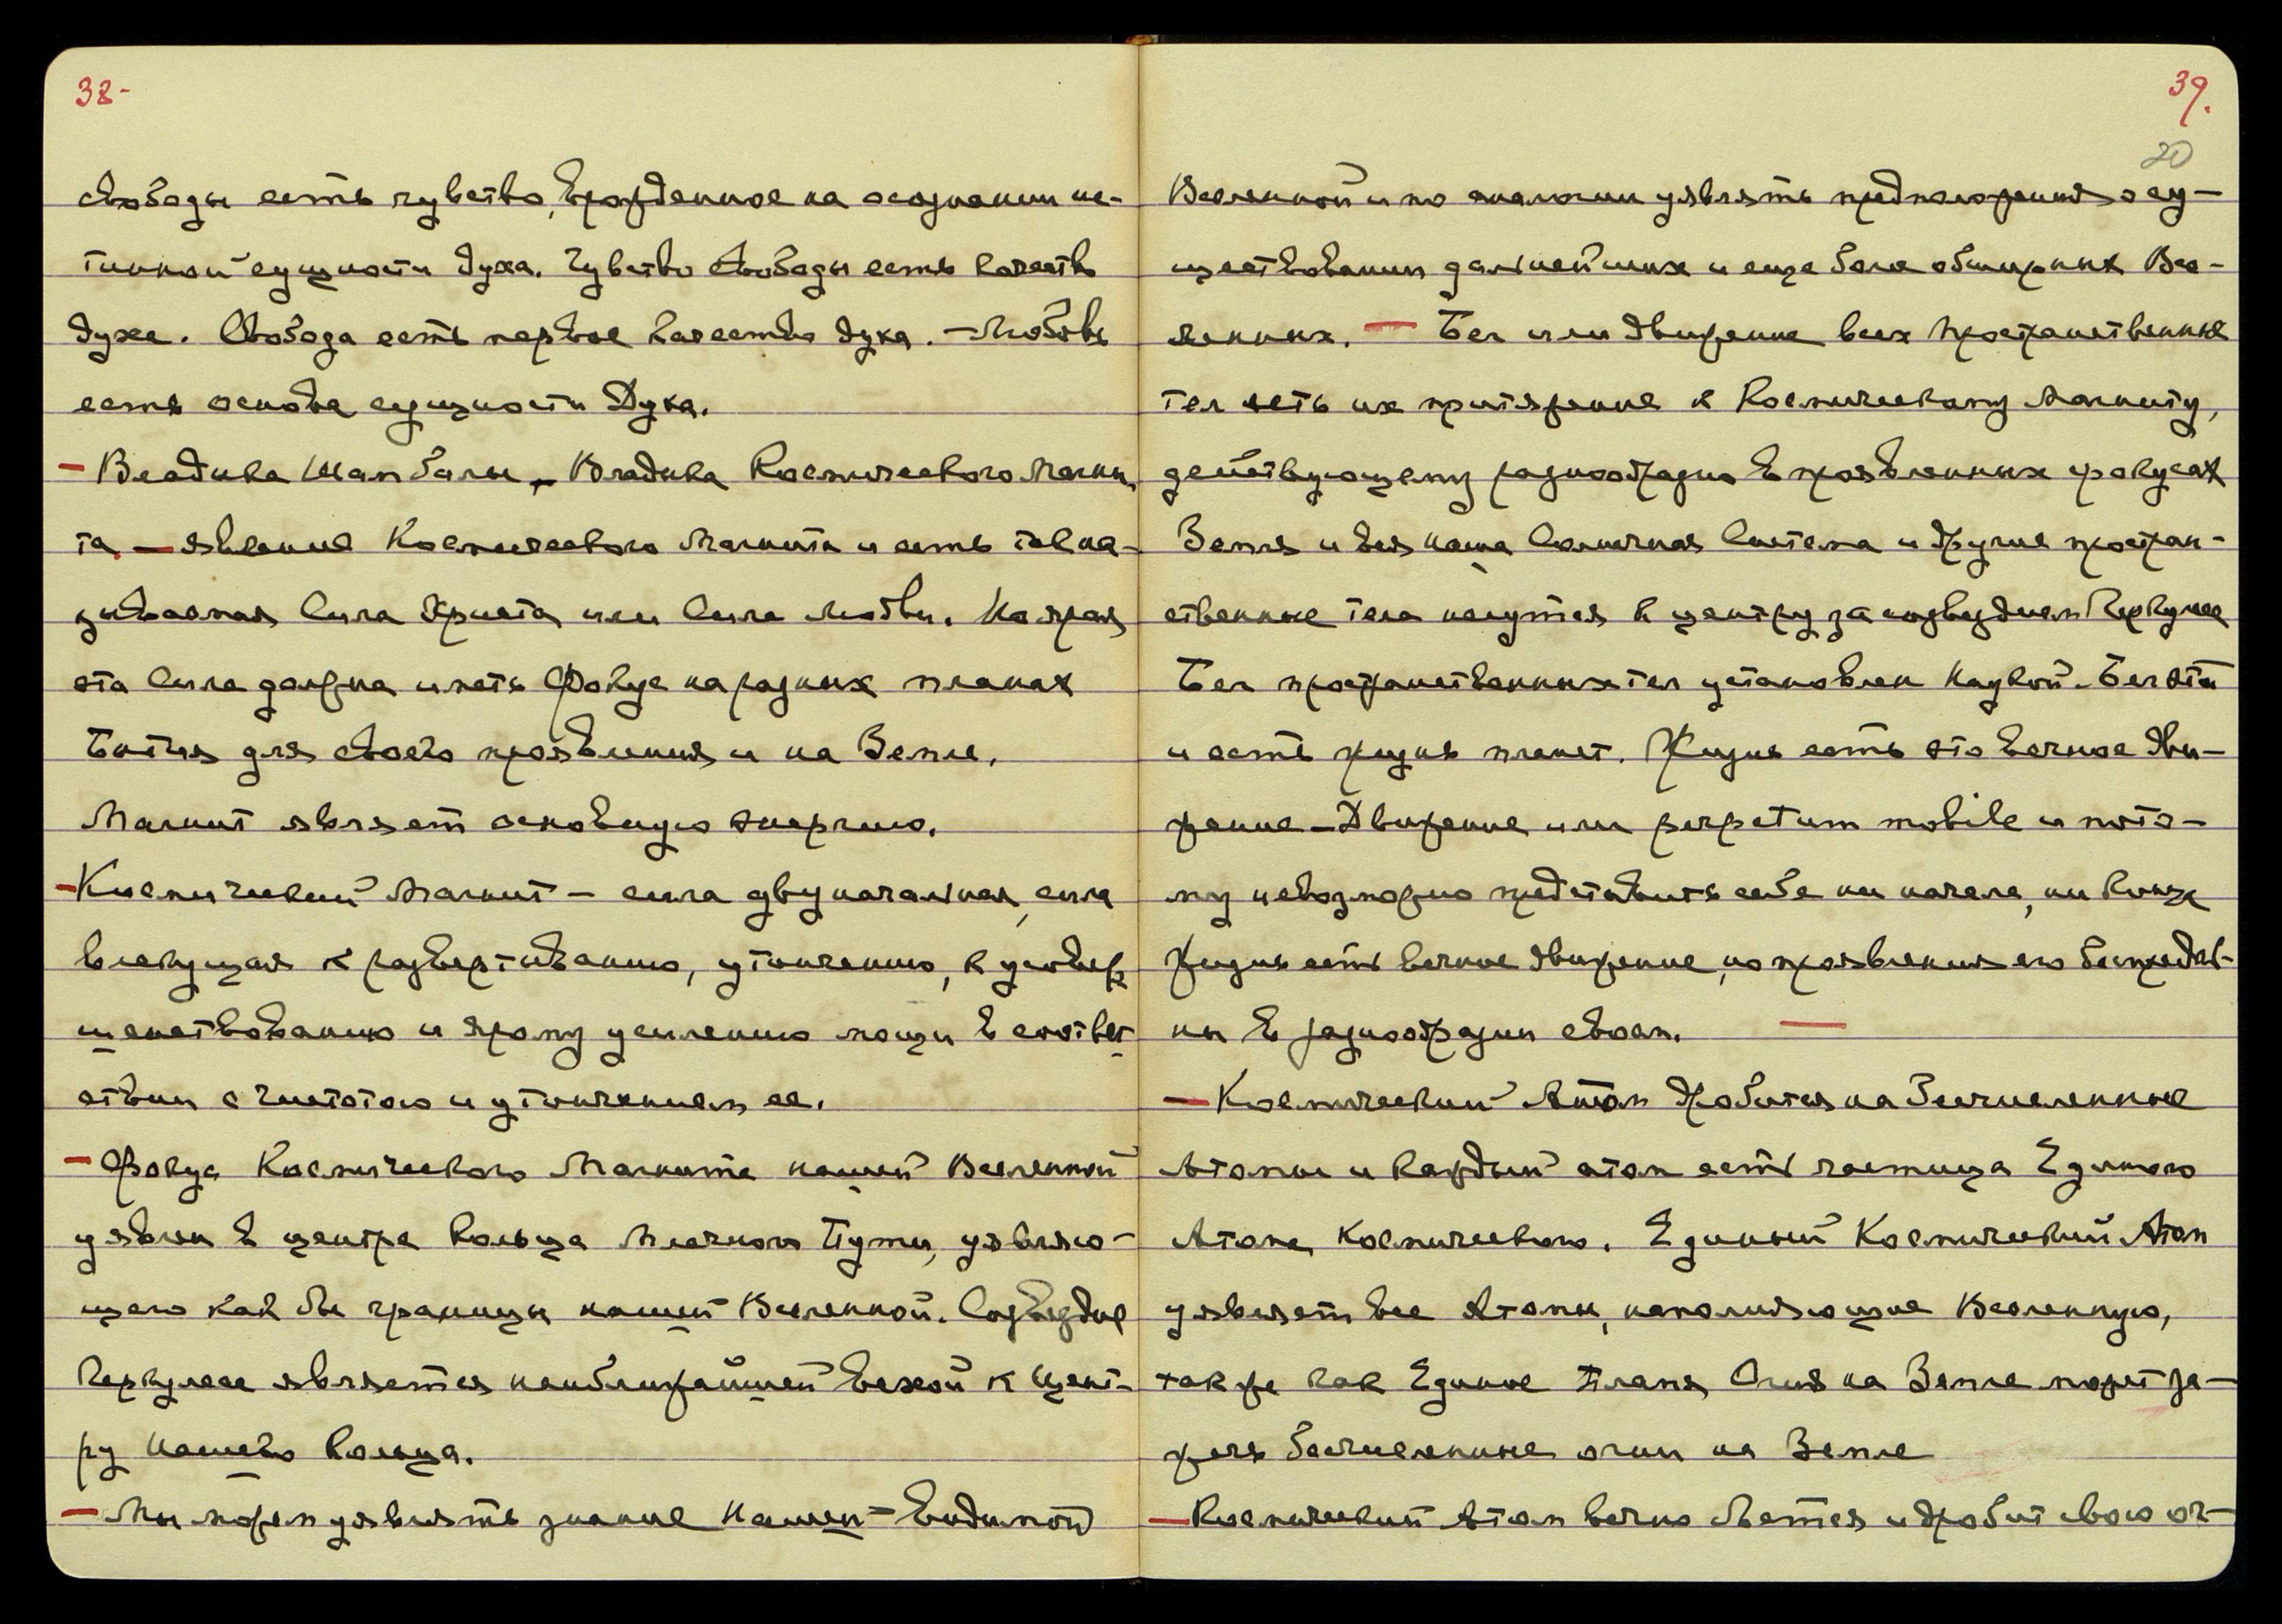 38-
свободы есть чувство, врожденное на осознании ис-
тинной сущности духа. Чувство Свободы есть качество
духа. Свобода есть первое качество духа. – Любовь
есть основа сущности Духа.
– Владыка Шамбалы – Владыка Космического Магни-
та – явление Космического Магнита и есть так на-
зываемая Сила Христа или Сила Любви. Но ярая
эта Сила должна иметь Фокус на разных планах
Бытия для своего проявления и на Земле.
Магнит являет основную энергию.
– Космический Магнит – сила двуначальная, сила
влекущая к развертыванию, утончению, к усовер-
шенствованию и ярому усилению мощи в соответ-
ствии с чистотою и утончением ее.
– Фокус Космического Магнита нашей Вселенной
уявлен в центре Кольца Млечного Пути, уявляю-
щего как бы границы нашей Вселенной. Созвездие
Геркулеса является наиближайшей Вехой к Цент-
ру Нашего Кольца.
– Мы можем уявлять знание Нашей – Видимой
39.
20
Вселенной и по аналогии уявлять предположения о су-
ществовании дальнейших и еще более обширных Все-
ленных. – Бег или движение всех пространственных
тел есть их притяжение к Космическому Магниту,
действующему разнообразно в проявленных фокусах
Земля и вся наша Солнечная Система и другие простран-
ственные тела несутся к центру за созвездием Геркулеса
Бег пространственных тел установлен Наукой. Бег этот
и есть жизнь планет. Жизнь есть это вечное дви-
жение – Движение или perpetum mobile и пото-
му невозможно представить себе ни начала, ни конца
Жизнь есть вечное движение, но проявления его беспредель-
ны в разнообразии своем.
– Космический Атом дробится на бесчисленные
Атомы и каждый атом есть частица Единого
Атома Космического. Единый Космический Атом
уявляет все Атомы, наполняющие Вселенную,
также как Единое Пламя Огня на Земле может за-
жечь бесчисленные огни на Земле
– Космический Атом вечно движется и дробит свою ог-